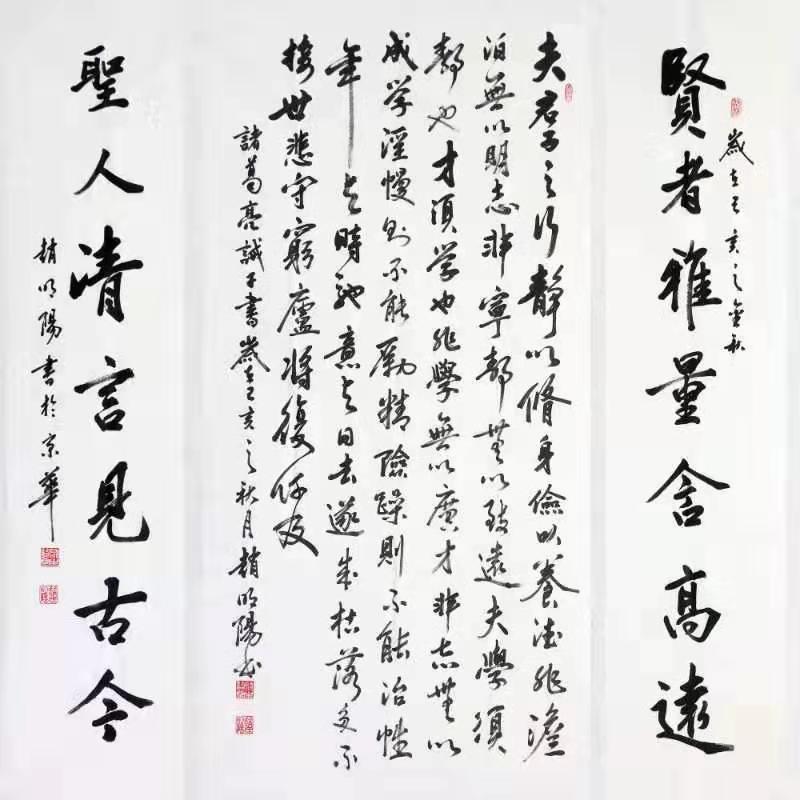 歲在己亥之金秋
賢者雅量含高遠
夫君子之行靜以脩身儉以養德非澹
泊無以明志非寧靜無以致遠夫學須
靜也才須学也非學無以廣才非志無以
成学淫慢則不能勵精險躁則不能治性
年与時馳意与日去遂成枯落多不
接世悲守窮廬將復何及
諸葛亮誡子書歲在己亥之秋月趙明陽書
聖人清言見古今
趙明陽書於京華